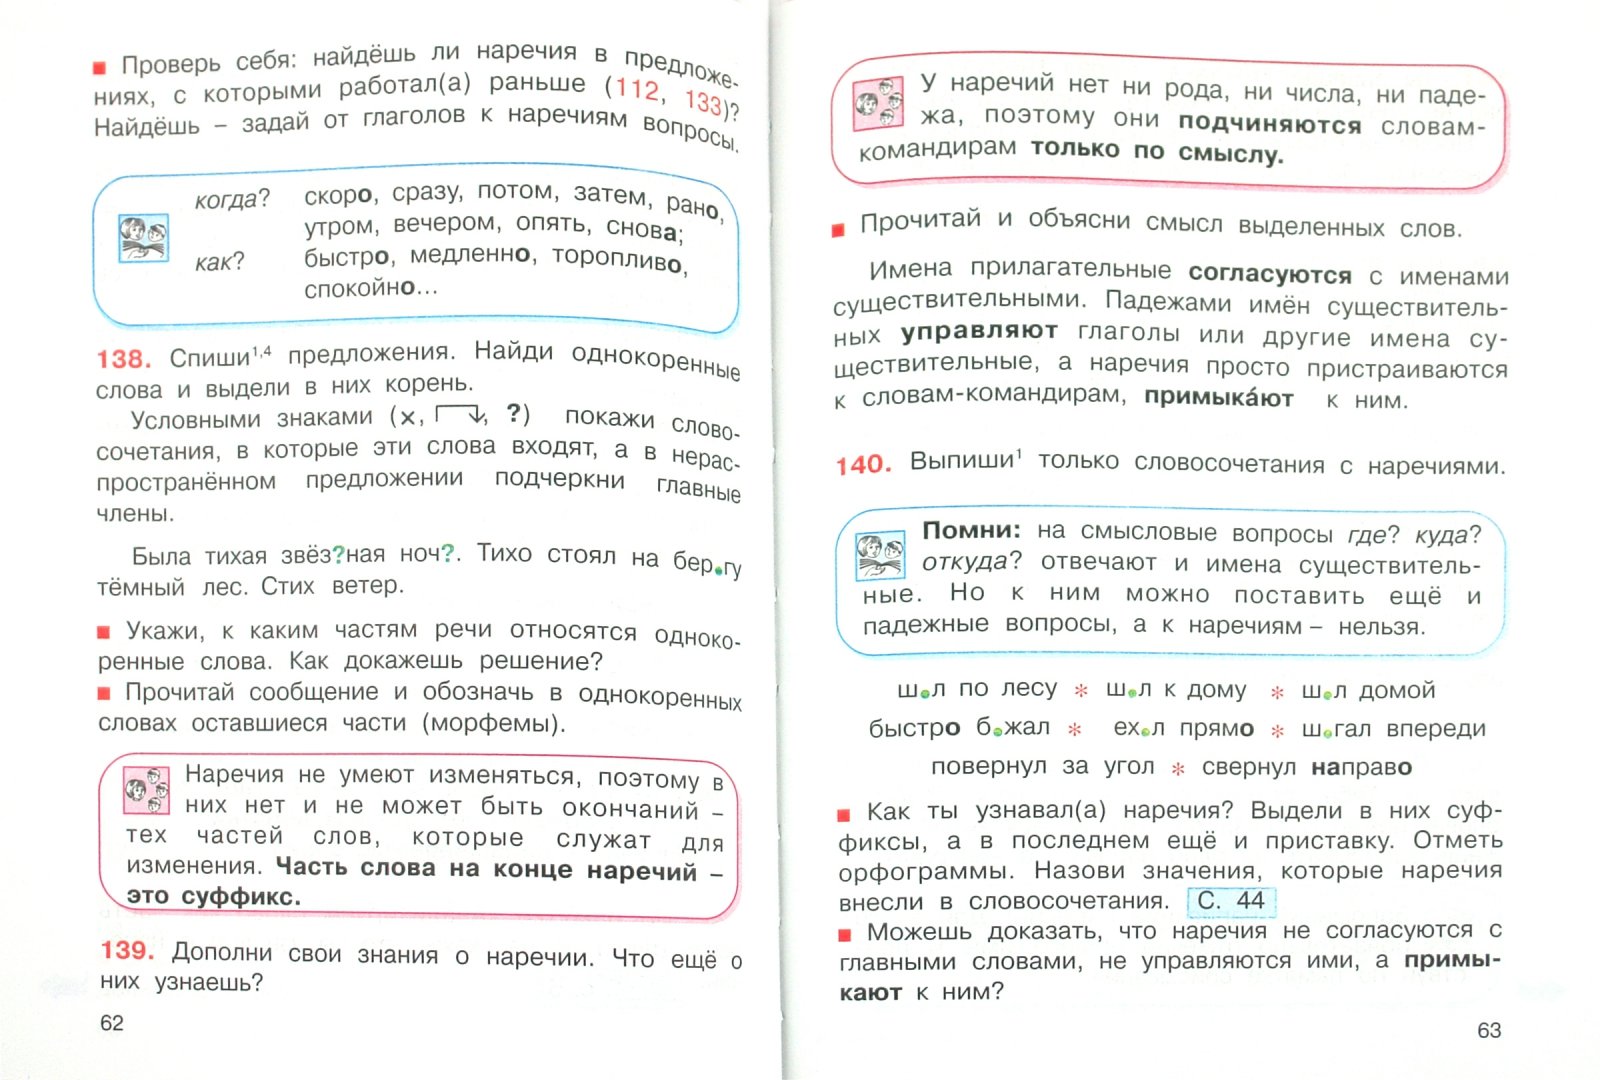 Проверь себя: найдёшь ли наречия в предложе-
ниях, с которыми работал(а) раньше (112, 133)?
Найдёшь – задай от глаголов к наречиям вопросы.
когда? скоро, сразу, потом, затем, рано,
утром, вечером, опять, снова;
как? быстро, медленно, торопливо,
спокойно...
138. Спиши¹,⁴ предложения. Найди однокоренные
слова и выдели в них корень.
Условными знаками (х, , ?) покажи слово-
сочетания, в которые эти слова входят, а в нерас-
пространённом предложении подчеркни главные
члены.
Была тихая звёз?ная ноч?. Тихо стоял на бер.гу
тёмный лес. Стих ветер.
Укажи, к каким частям речи относятся одноко-
ренные слова. Как докажешь решение?
Прочитай сообщение и обозначь в однокоренных
словах оставшиеся части (морфемы).
Наречия не умеют изменяться, поэтому в
них нет и не может быть окончаний –
тех частей слов, которые служат для
изменения. Часть слова на конце наречий –
это суффикс.
139. Дополни свои знания о наречии. Что ещё о
них узнаешь?
62
У наречий нет ни рода, ни числа, ни паде-
жа, поэтому они подчиняются словам-
командирам только по смыслу.
Прочитай и объясни смысл выделенных слов.
Имена прилагательные согласуются с именами
существительными. Падежами имён существитель-
ных управляют глаголы или другие имена су-
ществительные, а наречия просто пристраиваются
к словам-командирам, примыка́ют к ним.
140. Выпиши¹ только словосочетания с наречиями.
Помни: на смысловые вопросы где? куда?
откуда? отвечают и имена существитель-
ные. Но к ним можно поставить ещё и
падежные вопросы, а к наречиям – нельзя.
ш.л по лесу * ш.л к дому * ш.л домой
быстро б.жал * ех.л прямо * ш.гал впереди
повернул за угол * свернул направо
Как ты узнавал(а) наречия? Выдели в них суф-
фиксы, а в последнем ещё и приставку. Отметь
орфограммы. Назови значения, которые наречия
внесли в словосочетания. С. 44
Можешь доказать, что наречия не согласуются с
главными словами, не управляются ими, а примы-
кают к ним?
63